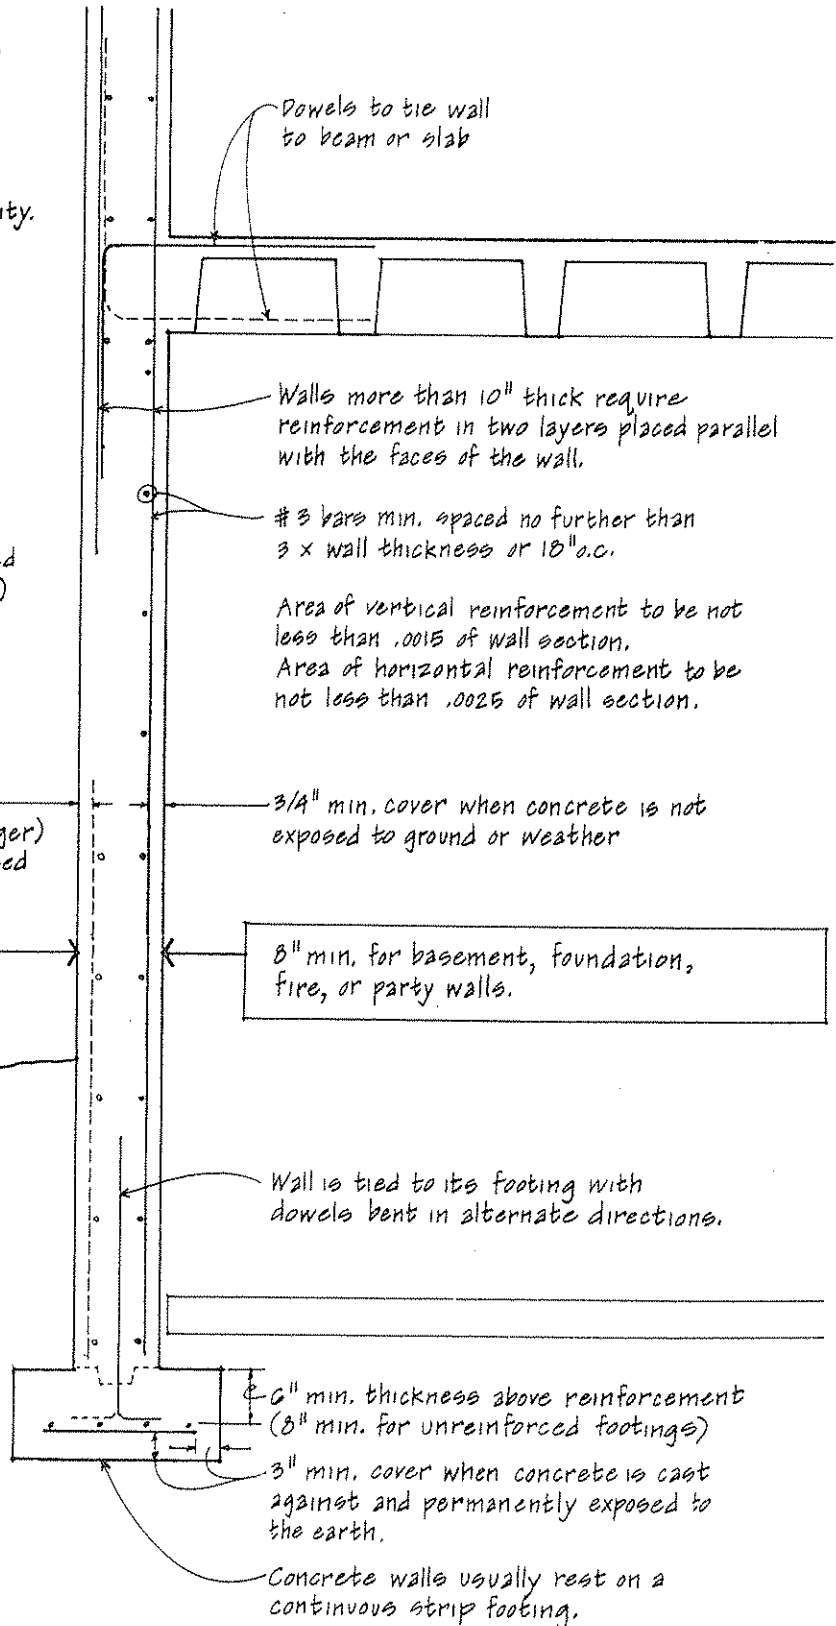 Dowels to tie wall
to beam or slab
ity.
Walls more than 10" thick require
reinforcement in two layers placed parallel
with the faces of the wall.
#3 bars min. spaced no further than
3 x wall thickness or 18" o.c.
d
)
Area of vertical reinforcement to be not
less than .0015 of wall section.
Area of horizontal reinforcement to be
not less than .0025 of wall section.
3/4" min. cover when concrete is not
exposed to ground or weather
ger)
ed
8" min. for basement, foundation,
fire, or party walls.
Wall is tied to its footing with
dowels bent in alternate directions.
6" min. thickness above reinforcement
(8" min. for unreinforced footings)
3" min. cover when concrete is cast
against and permanently exposed to
the earth.
Concrete walls usually rest on a
continuous strip footing.